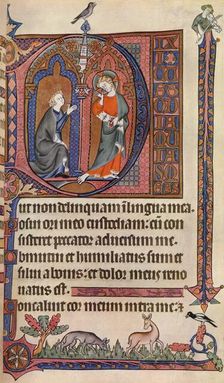 ut non delinquam ī lingua mea
osui ori meo custodiam: cū con
sisteret peccator adversum me
bmutui et humiliatus sum et
silui a bonis: et dolor meus reno
vatus est
oncaluit cor meum intra me: et